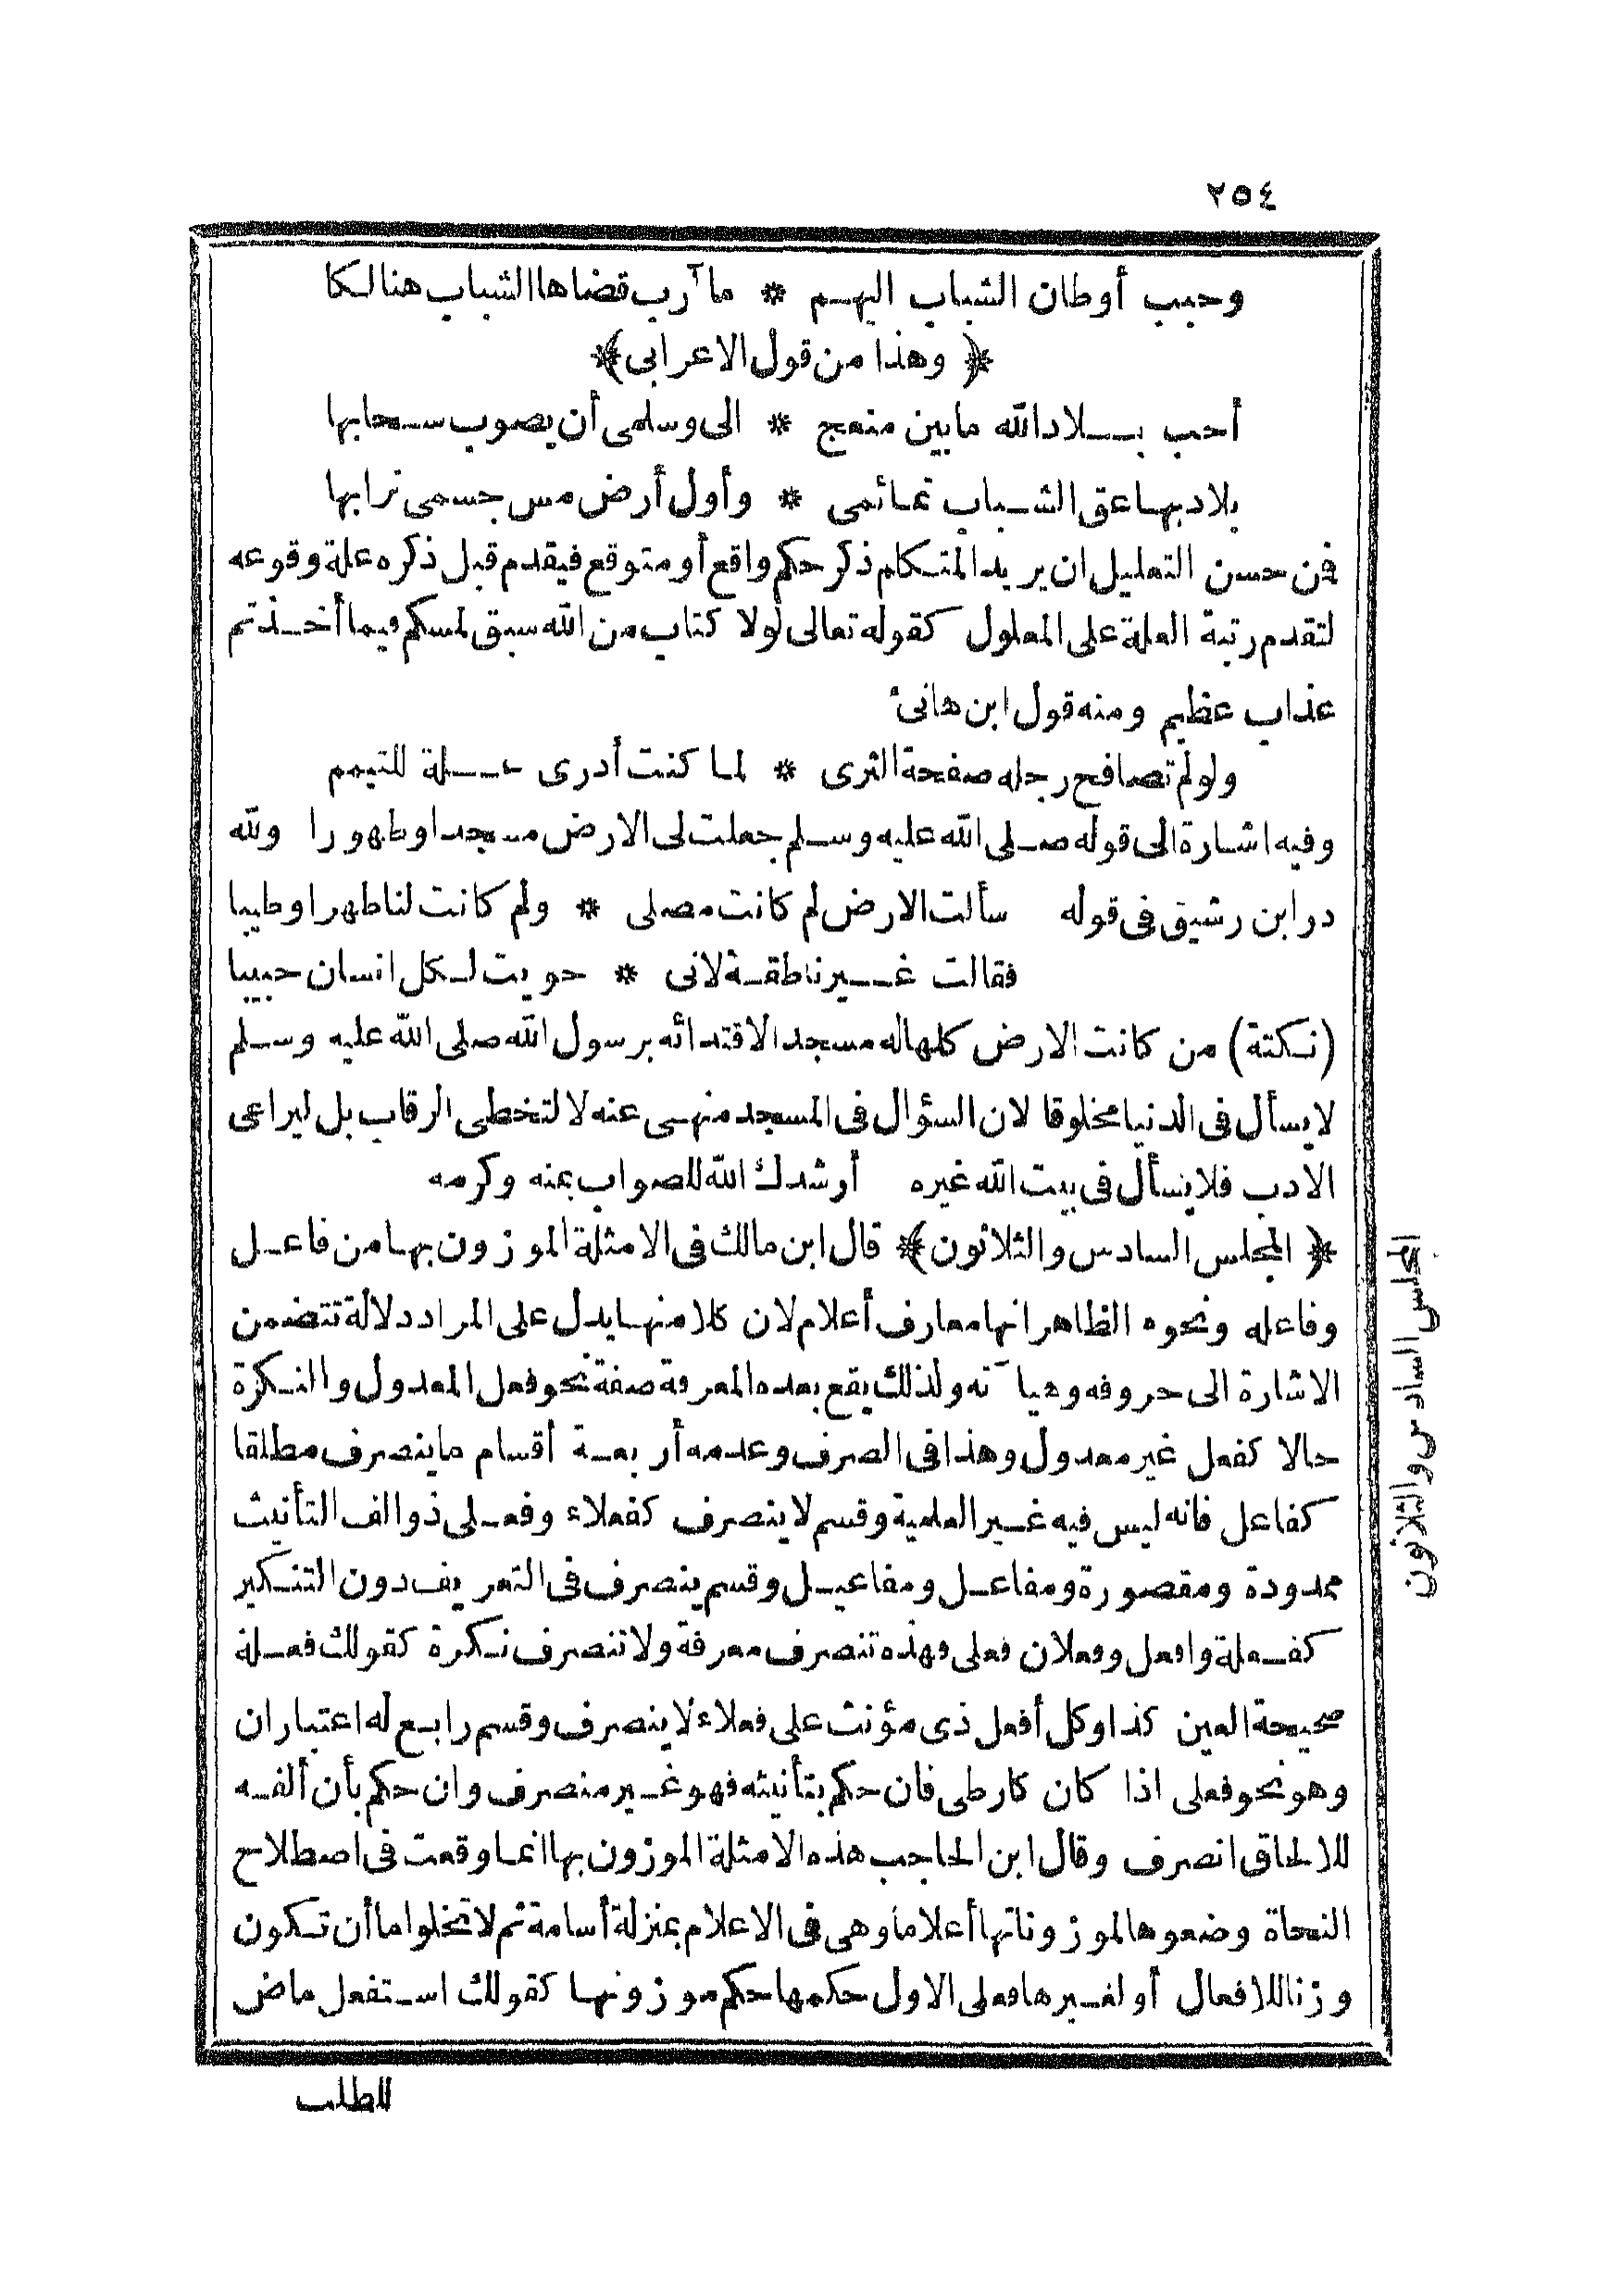 ٢٥٤
وحبب أوطان الشباب اليهم * مآرب قضاها الشباب هنالكا
﴿ وهذا من قول الاعرابى ﴾
أحب بلاد الله ما بين منعج * الى وسلمى أن يصوب سحابها
بلاد بها عق الشباب تمائمى * وأول أرض مس جسمى ترابها
فن حسن التعليل ان يريد المتكلم ذكر حكم واقع أو متوقع فيقدم قبل ذكره علة وقوعه
لتقدم رتبة العلة على المعلول كقوله تعالى لولا كتاب من الله سبق لمسكم فيما أخذتم
عذاب عظيم ومنه قول ابن هانئ
ولو لم تصافح رجله صفحة الثرى * لما كنت أدرى علة للتيمم
وفيه اشارة الى قوله صلى الله عليه وسلم جعلت لى الارض مسجدا وطهورا ولله
در ابن رشيق فى قوله سألت الارض لم كانت مصلى * ولم كانت لنا طهرا وطيبا
فقالت غير ناطقة لانى * حويت لكل انسان حبيبا
(نكتة) من كانت الارض كلها له مسجد الاقتدائه برسول الله صلى الله عليه وسلم
لا يسأل فى الدنيا مخلوقا لان السؤال فى المسجد منهى عنه لا لتخطى الرقاب بل ليراعى
الادب فلا يسأل فى بيت الله غيره أرشدك الله للصواب بمنه وكرمه
﴿ المجلس السادس والثلاثون ﴾ قال ابن مالك فى الامثلة الموزون بها من فاعل
وفاعله ونحوه الظاهر انها معارف أعلام لان كلا منها يدل على المراد دلالة تتضمن
الاشارة الى حروفه وهيآته ولذلك يقع بعده المعرفة صفة نحو فعل المعدول والنكرة
حالا كفعل غير معدول وهذا فى الصرف وعدمه أربعة أقسام ما ينصرف مطلقا
كفاعل فانه ليس فيه غير العلمية وقسم لا ينصرف كفعلاء وفعلى ذو الف التأنيث
ممدودة ومقصورة ومفاعل ومفاعيل وقسم ينصرف فى التعريف دون التنكير
كفعلة وافعل وفعلان فعلى فهذه تنصرف معرفة ولا تنصرف نكرة كقولك فعلة
صحيحة العين كذا وكل أفعل ذى مؤنث على فعلاء لا ينصرف وقسم رابع له اعتباران
وهو نحو فعلى اذا كان كارطى فان حكم بتأنيثه فهو غير منصرف وان حكم بأن ألفه
للالحاق انصرف وقال ابن الحاجب هذه الامثلة الموزون بها انما وقعت فى اصطلاح
النحاة وضعوها لموزوناتها أعلاما وهى فى الاعلام بمنزلة أسامة ثم لا تخلو اما أن تكون
وزنا للافعال أو لغيرها فعلى الاول حكمها حكم موزونها كقولك استفعل ماض
للطلب
المجلس السادس والثلاثون